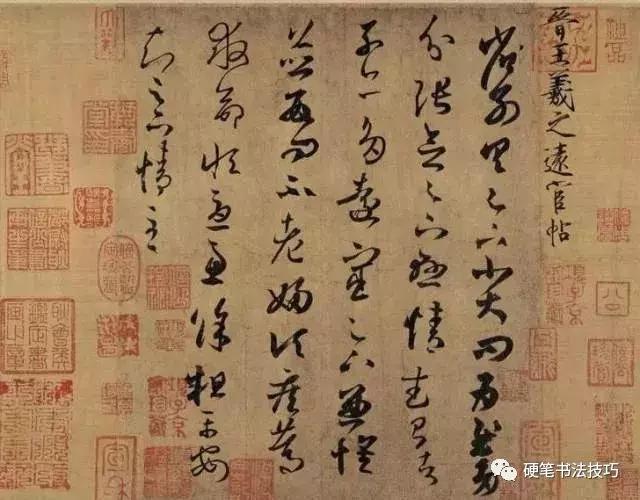 晉王羲之遠宦帖
省別具足下小大問為慰多
分張念足下懸情武昌諸
子亦多遠宦足下兼懷
並數問不老婦頃疾篤
救命恒憂慮餘粗平安
知足下情至
硬笔书法技巧